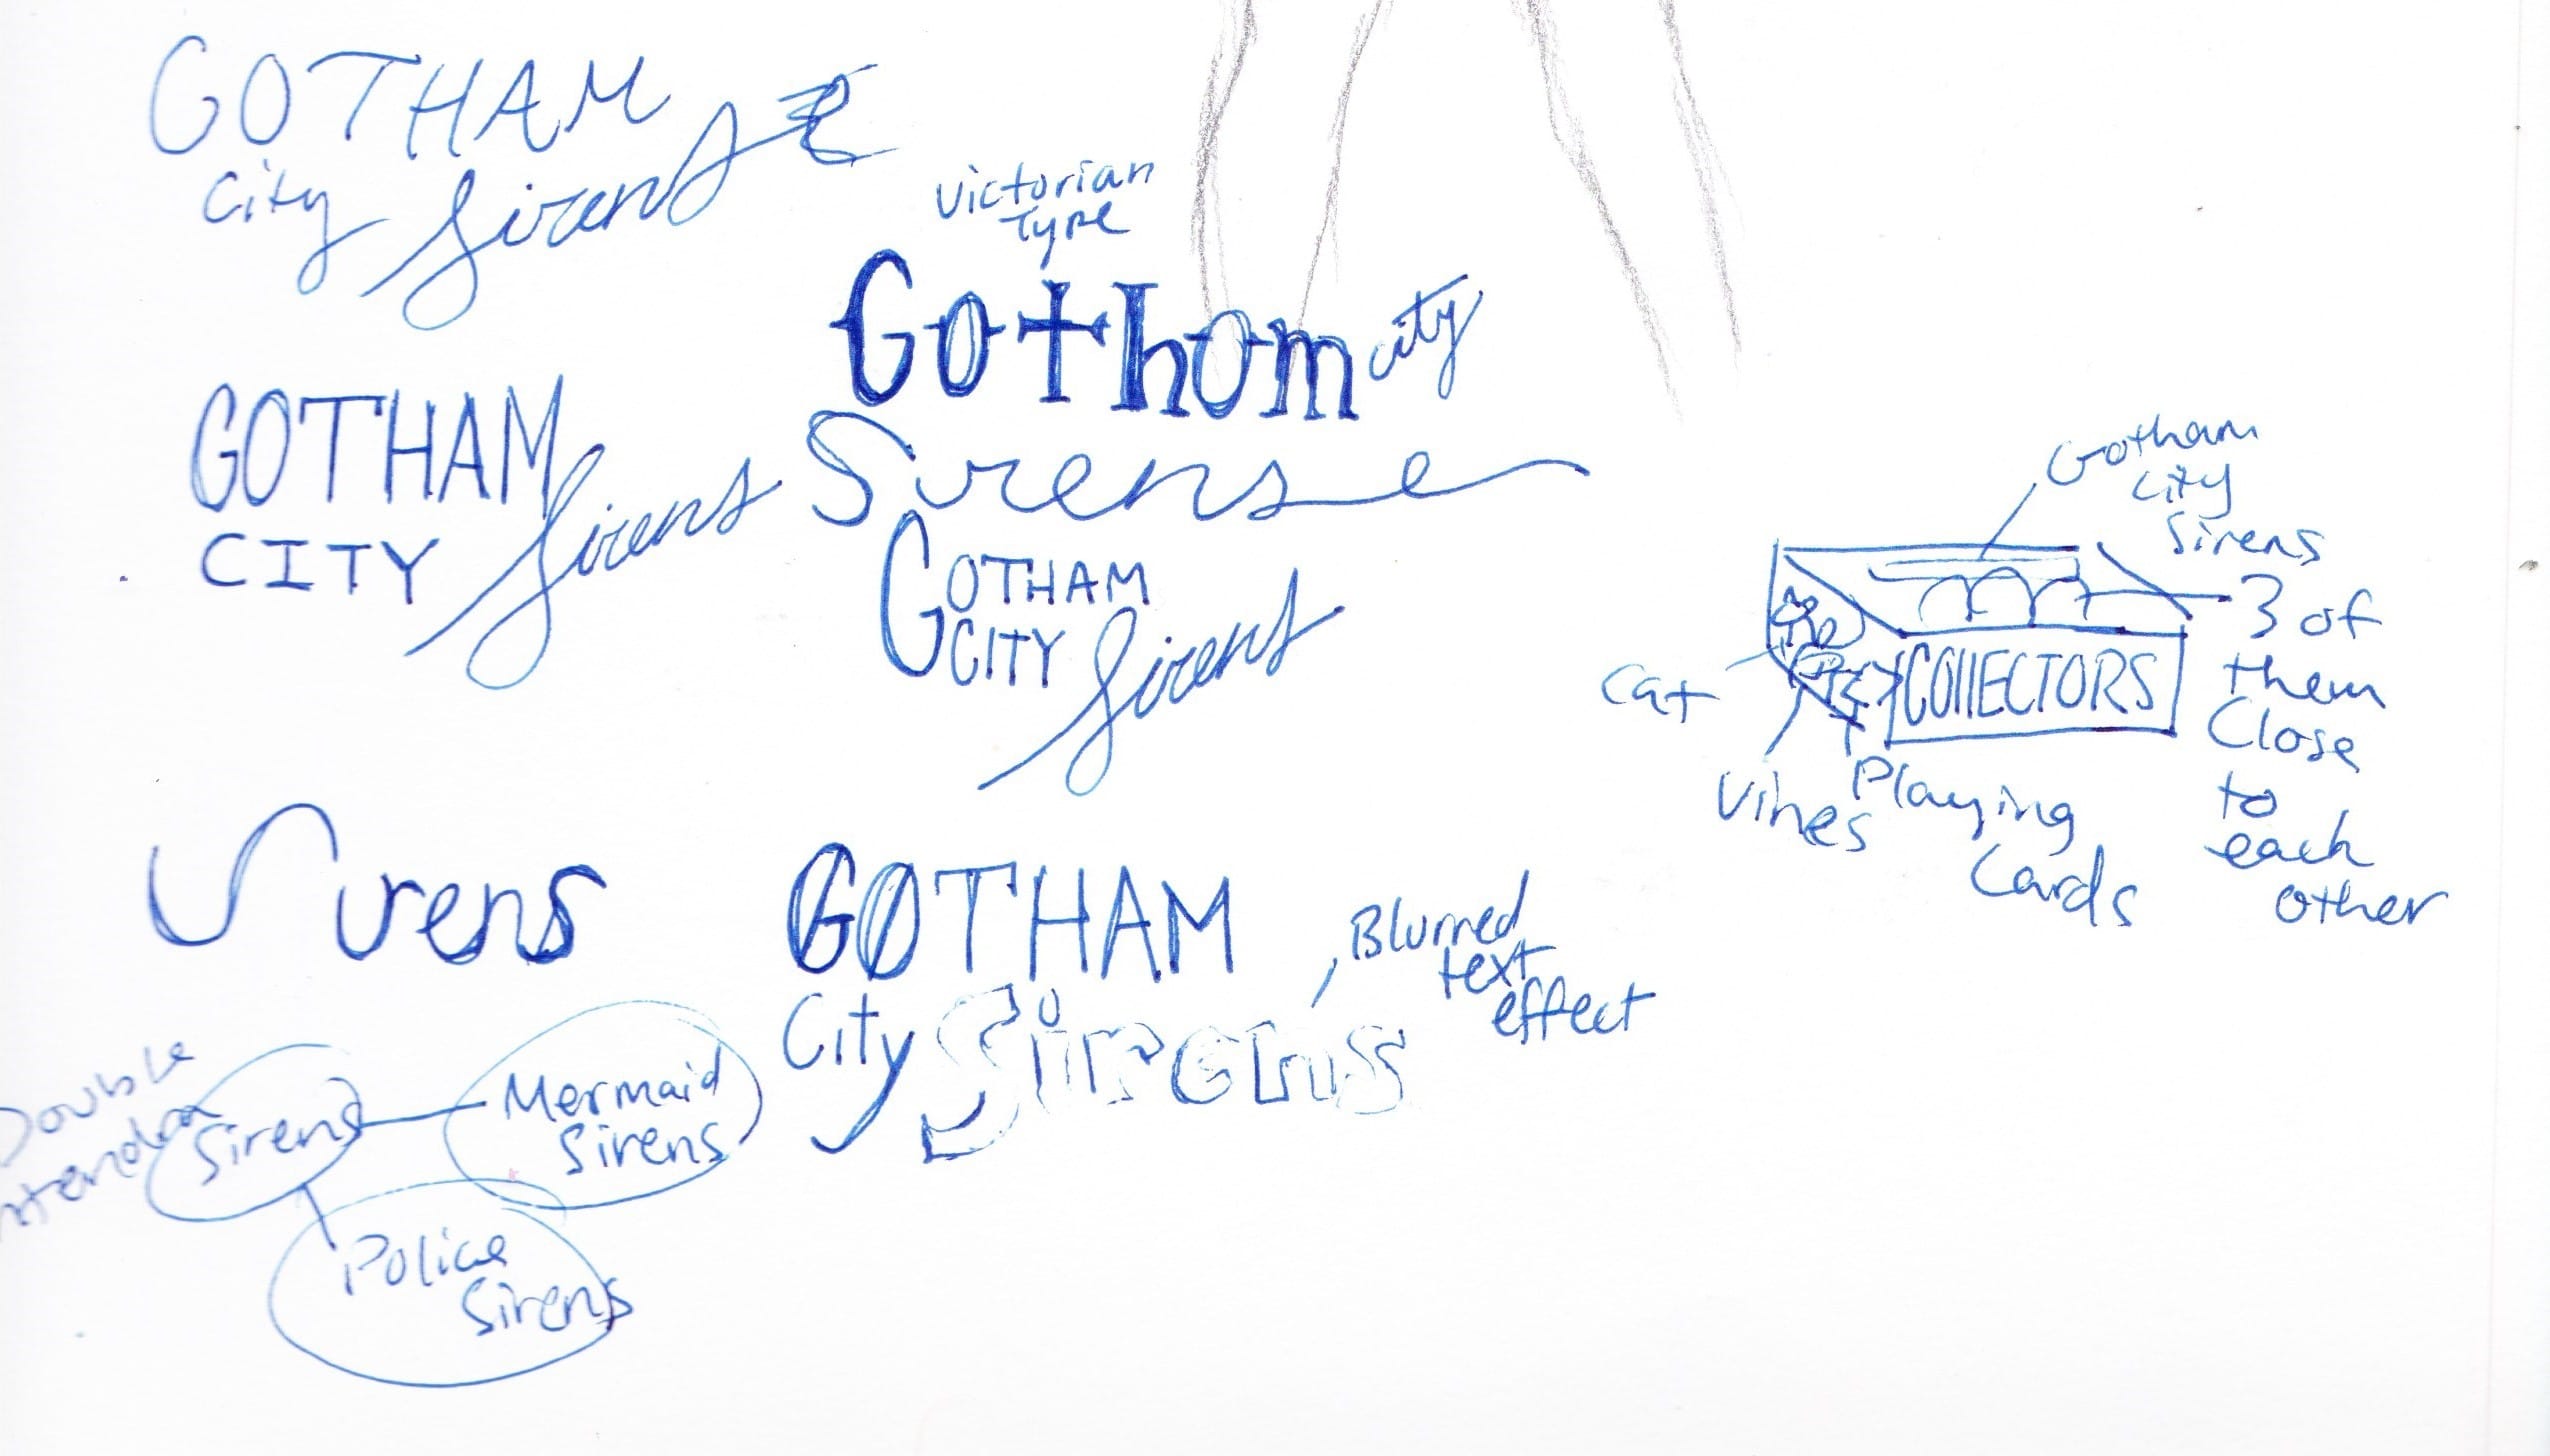 GOTHAM
City Sirens
Victorian
Type
Gotham city
Sirens
GOTHAM
CITY Sirens
GOTHAM
CITY Sirens
Gotham
City
Sirens
3 of
them
Close
to
each
other
COllECTORS
Cat
Vines
Playing
Cards
Sirens
GOTHAM
City Sirens
Blurred
text
effect
Double
Sirens
Mermaid
Sirens
Police
Sirens